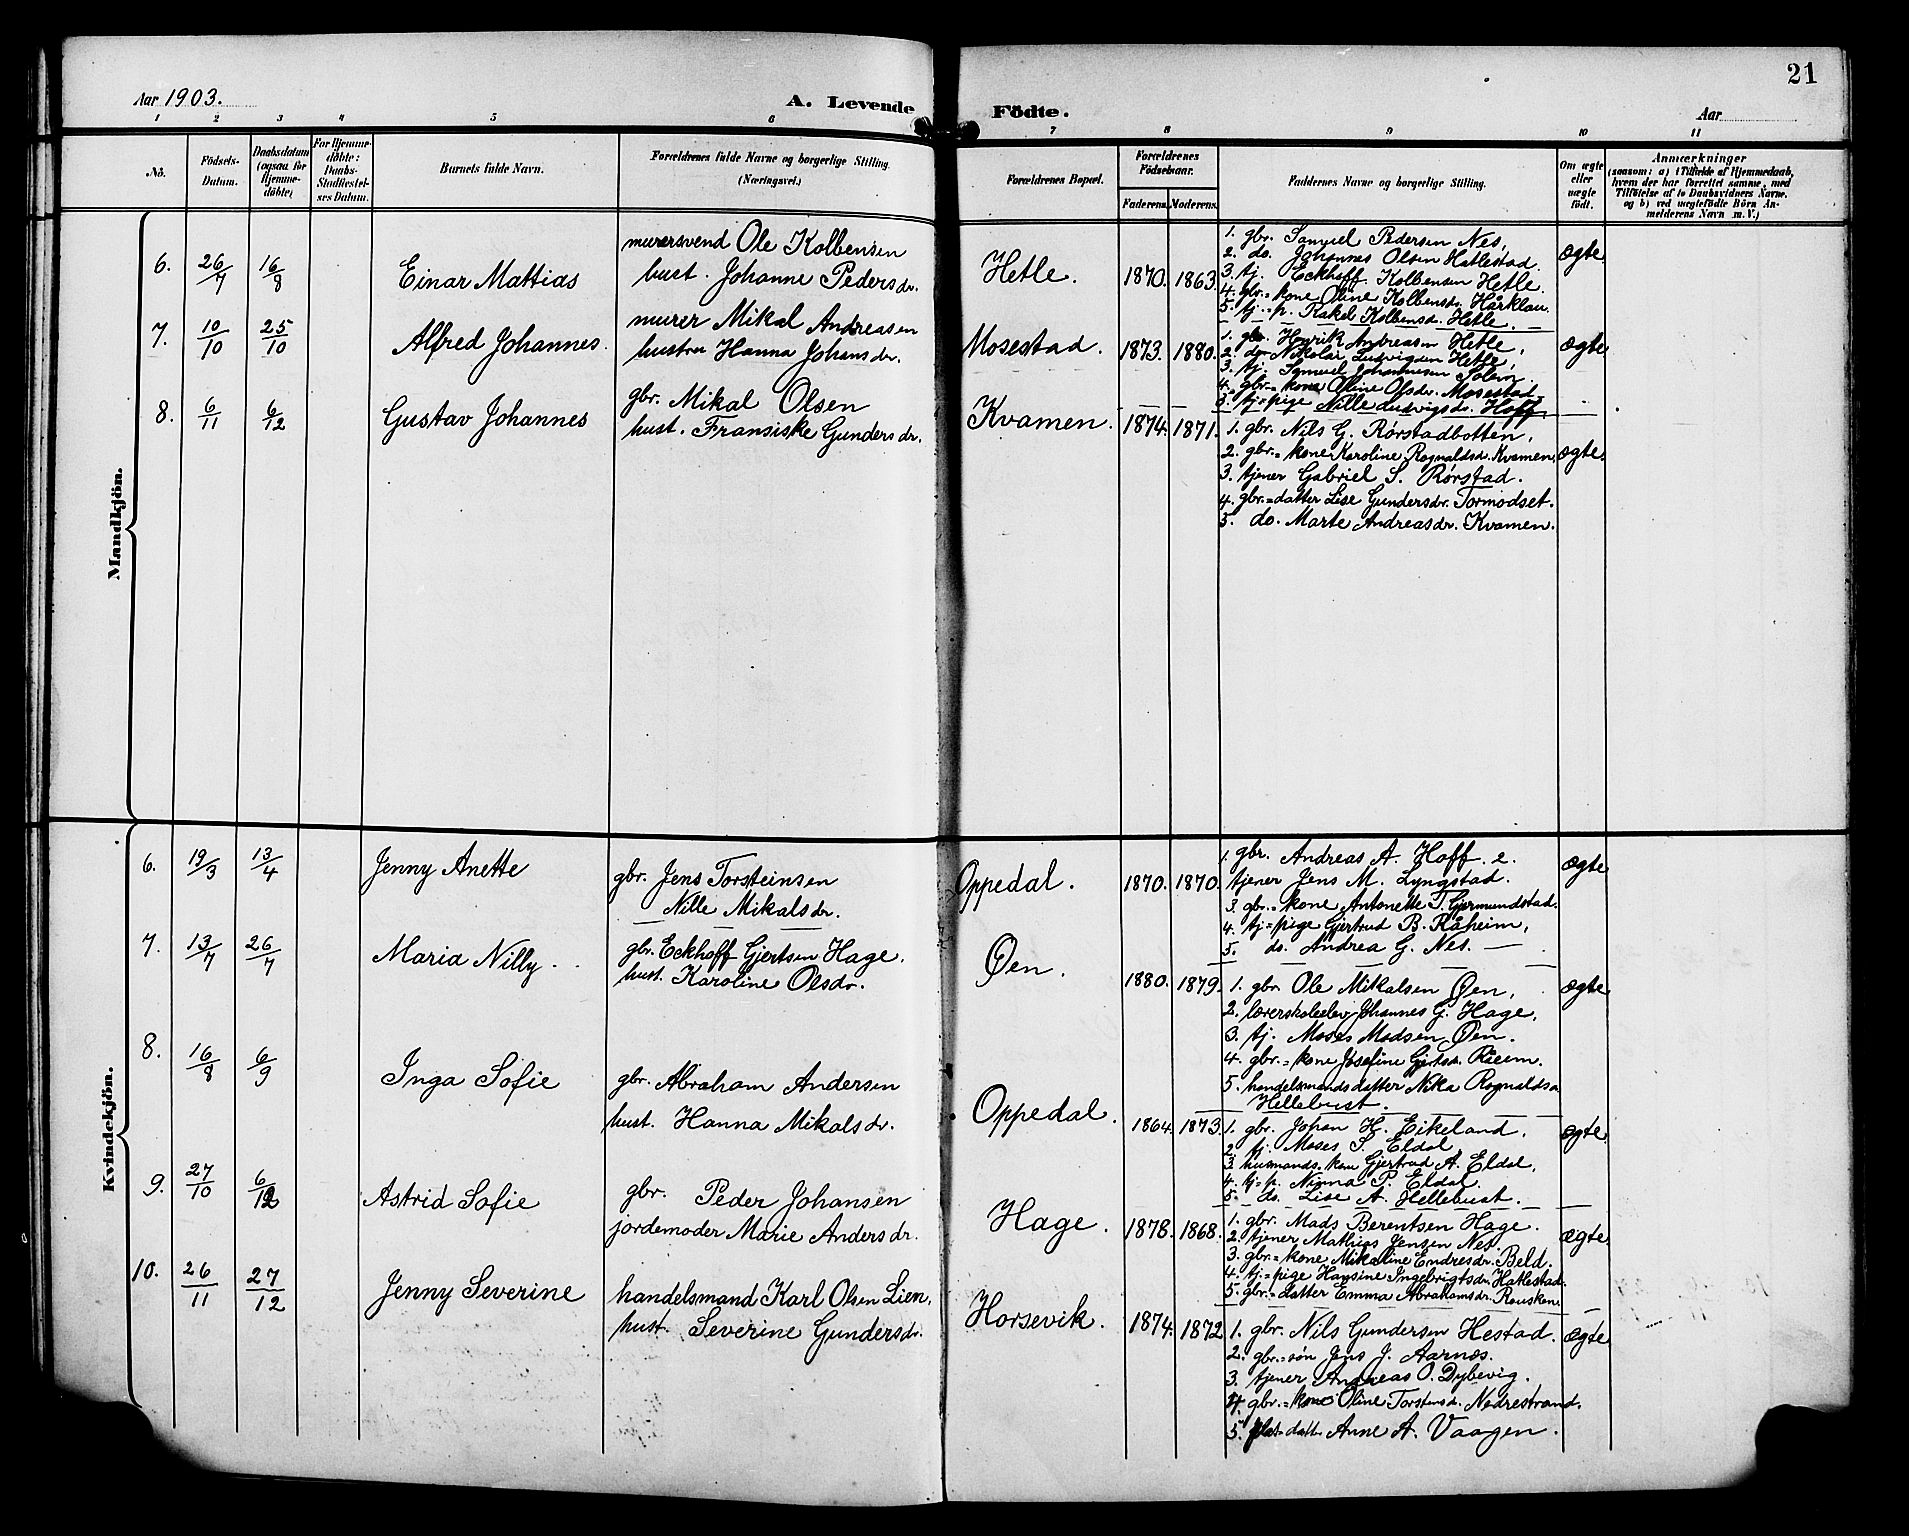 21
Aar 1903.
A. Levende Födte.
Aar
1 2 3 4 5 6 7 8 9 10 11
No.
Födsels-Datum.
Daabsdatum (ogsaa for Hjemme-döbte)
For Hjemme-döbte: Daabs-Stadfæstel-ses Datum.
Barnets fulde Navn.
Forældrenes fulde Navne og borgerlige Stilling.
(Næringsvei.)
Forældrenes Bopæl.
Forældrenes Födselsaar.
Faderens. Moderens.
Faddernes Navne og borgerlige Stilling.
Om ægte eller uægte födt.
Anmærkninger
(saasom: a) i Tilfælde af Hjemmedaab,
hvem der har forrettet samme, med
Tilföielse af to Daabsvidners Navne,
og b) ved uægtefödte Börn An-
melderens Navn m. V.)
Mandkjön.
6. 26/7 16/8 Einar Mattias
murersvend Ole Kolbensen
hust. Johanne Pedersdr.
Hetle. 1870. 1863.
1. gbr. Samuel Pedersen Nes,
2. do. Johannes Olsen Hatlestad.
3. tj. Eckhoff Kolbensen Hetle.
4. gbr.=kone Oline Kolbensdr. Hårklau.
5. tj.=p. Rakel Kolbensd. Hetle.
ægte.
7. 10/10 25/10 Alfred Johannes.
murer Mikal Andreasen
hustru Hanna Johansdr.
Mosestad. 1873. 1880.
1. gbr. Henrik Andreasen Hetle,
2. do. Nikolai Ludvigsen Hetle,
3. tj. Samuel Johannesen
4. gbr.=kone Oline Olsdr. Mosestad
5. tj=pige Nille Ludvigsdr. Hoff
ægte
8. 6/11 6/12 Gustav Johannes
gbr. Mikal Olsen
hust. Fransiske Gundersdr.
Kvamen. 1874. 1871.
1. gbr. Nils G. Rørstadbotten,
2. gbr.=kone Karoline Rognaldsd. Kvamen,
3. tjener Gabriel S. Rørstad.
4. gbr.=datter Lise Gundersdr. Tormodset.
5. do. Marte Andreasdr. Kvamen.
ægte.
Kvindekjön.
6. 19/3 13/4 Jenny Anette
gbr. Jens Torsteinsen
Nille Mikalsdr.
Oppedal. 1870. 1870.
1. gbr. Andreas A. Hoff. 2.
tjener Jens M. Lyngstad.
3. gbr.=kone Antonette T. Gjermundstad.
4. tj=pige Gjertrud B. Råheim,
5. do. Andrea G. Nes.
ægte
7. 13/7 26/7 Maria Nilly.
gbr. Eckhoff Gjertsen Hage.
hust. Karoline Olsdr.
Øen. 1880. 1879.
1. gbr. Ole Mikalsen Øen,
2. lærerskoleelev Johannes G. Hage,
3. tj. Moses Madsen Øen.
4. gbr.=kone Josefine Gjertsdr.
5. handelsmandsdatter Nika Rognaldsd
Hellebust.
ægte
8. 16/8 6/9 Inga Sofie
gbr. Abraham Andersen
hust. Hanna Mikalsdr.
Oppedal. 1864. 1873.
1. gbr. Johan H. Eikeland,
2. tj. Moses S. Eldal
3. husmands.kone Gjertrud A. Eldal,
4. tj=p. Ninna P. Eldal.
5. do. Lise A. Hellebust.
ægte
9. 27/10 6/12 Astrid Sofie
gbr. Peder Johansen
jordemoder Marie Andersdr.
Hage. 1878. 1868.
1. gbr. Mads Berentsen Hage.
2. tjener Mathias Jensen Nes.
3. gbr.=kone Mikaline Endresdr. Beld.
4. tj=pige Hansine Ingebrigtsdr. Hatlestad.
5. gbr.=datter Emma Abrahamsdr.
ægte
10. 26/11 27/12 Jenny Severine
handelsmand Karl Olsen Lien,
hust. Severine Gundersdr.
Horsevik. 1874. 1872
1. gbr. Nils Gundersen Hestad.
2. gbr.=søn Jens J. Aarnes.
3. tjener Andreas O. Dybevig.
4. gbr.=kone Oline Torstensd. Nedrestrand.
5. datt. Anne A. Vaagen.
ægte